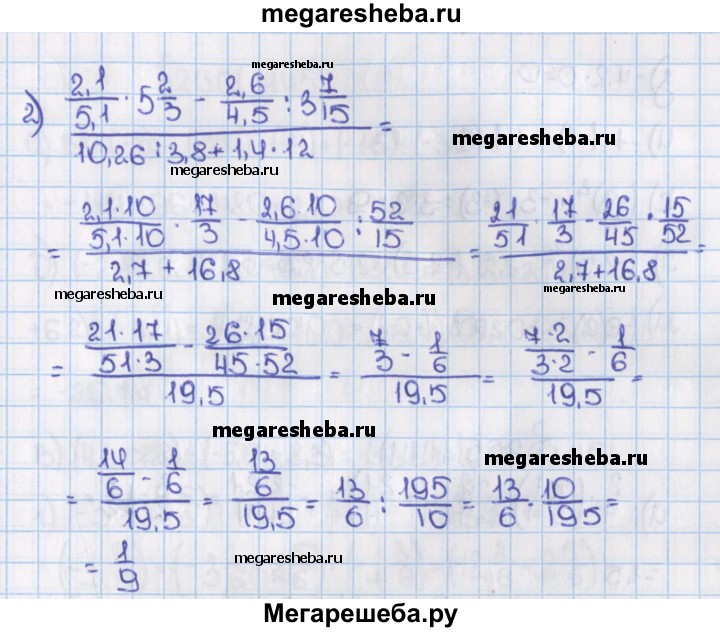 megaresheba.ru
megaresheba.ru
2) (2,1/5,1 · 5 2/3 - 2,6/4,5 : 3 7/15) / (10,26 : 3,8 + 1,4 · 12) =
megaresheba.ru
megaresheba.ru
= (2,1·10/5,1·10 · 17/3 - 2,6·10/4,5·10 : 52/15) / (2,7 + 16,8) = (21/51 · 17/3 - 26/45 · 15/52) / (2,7+16,8) =
megaresheba.ru
megaresheba.ru
megaresheba.ru
= (21·17/51·3 - 26·15/45·52) / 19,5 = (7/3 - 1/6) / 19,5 = (7·2/3·2 - 1/6) / 19,5 =
megaresheba.ru
megaresheba.ru
= (14/6 - 1/6) / 19,5 = (13/6) / 19,5 = 13/6 : 195/10 = 13/6 · 10/195 =
= 1/9
megaresheba.ru
Мегарешеба.ру